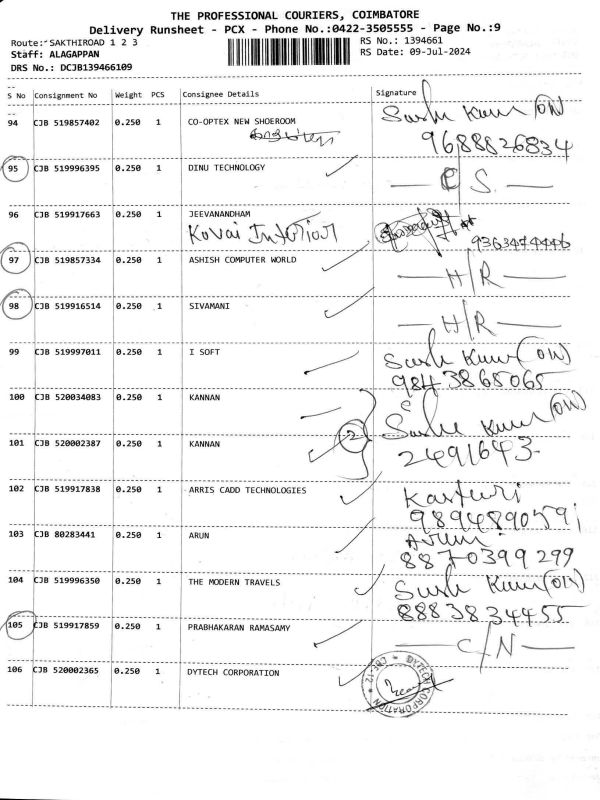 THE PROFESSIONAL COURIERS, COIMBATORE
Delivery Runsheet - PCX - Phone No.:0422-3505555 - Page No.:9
Route: SAKTHIROAD 1 2 3 RS No.: 1394661
Staff: ALAGAPPAN RS Date: 09-Jul-2024
DRS No.: DCJB139466109
S No Consignment No Weight PCS Consignee Details Signature
94 CJB 519857402 0.250 1 CO-OPTEX NEW SHOEROOM
9688826834
95 CJB 519996395 0.250 1 DINU TECHNOLOGY
96 CJB 519917663 0.250 1 JEEVANANDHAM
Kovai Interiour 9363474446
97 CJB 519857334 0.250 1 ASHISH COMPUTER WORLD H/R
98 CJB 519916514 0.250 1 SIVAMANI H/R
99 CJB 519997011 0.250 1 I SOFT
9843865065
100 CJB 520034083 0.250 1 KANNAN
2
101 CJB 520002387 0.250 1 KANNAN 2491643
102 CJB 519917838 0.250 1 ARRIS CADD TECHNOLOGIES Kasturi
9894890591
103 CJB 80283441 0.250 1 ARUN Arun
8870399299
104 CJB 519996350 0.250 1 THE MODERN TRAVELS
8883834455
105 CJB 519917859 0.250 1 PRABHAKARAN RAMASAMY C/N
106 CJB 520002365 0.250 1 DYTECH CORPORATION
DYTECH CORPORATION CBE-12